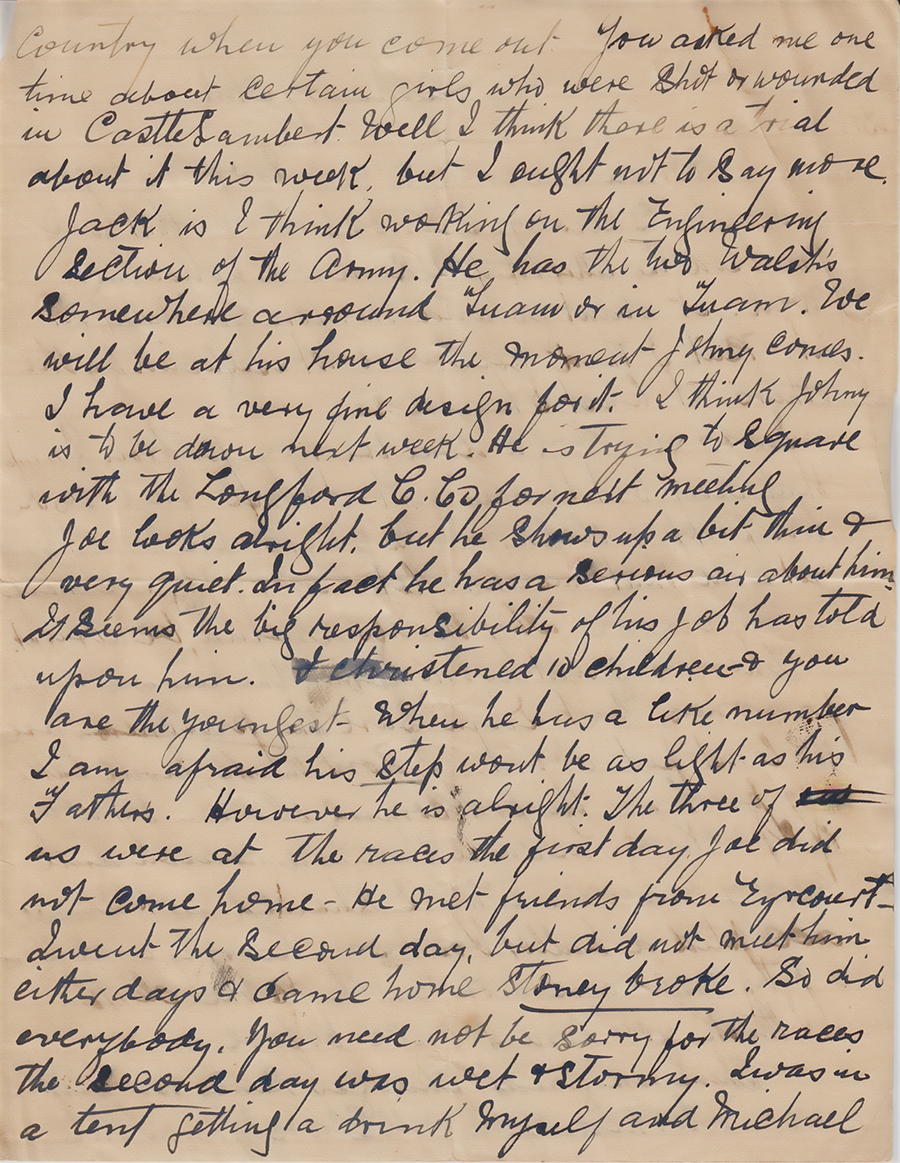 Country when you come out You asked me one
time about certain girls who were shot or wounded
in CastleLambert. Well I think there is a trial
about it this week, but I ought not to say more.
Jack is I think working on the Engineering
Section of the Army. He has the two Walsh's
somewhere arround Tuam or in Tuam. We
will be at his house the moment Johny comes.
I have a very fine design for it. I think Johny
is to be down next week. He is trying to square
with the Longford C. Co for next meeting
Joe looks alright, but he shows up a bit thin &
very quiet. In fact he has a serious air about him.
It seems the big responsibility of his job has told
upon him. I christened 10 children & you
are the youngest. When he has a like number
I am afraid his step wont be as light as his
Fathers. However he is alright. The three of
us were at the races the first day. Joe did
not come home - He met friends from Eyrcourt -
I went the second day, but did not meet him
either days & came home stoney broke. So did
everybody. You need not be sorry for the races
the second day was wet & stormy. I was in
a tent getting a drink myself and Michael